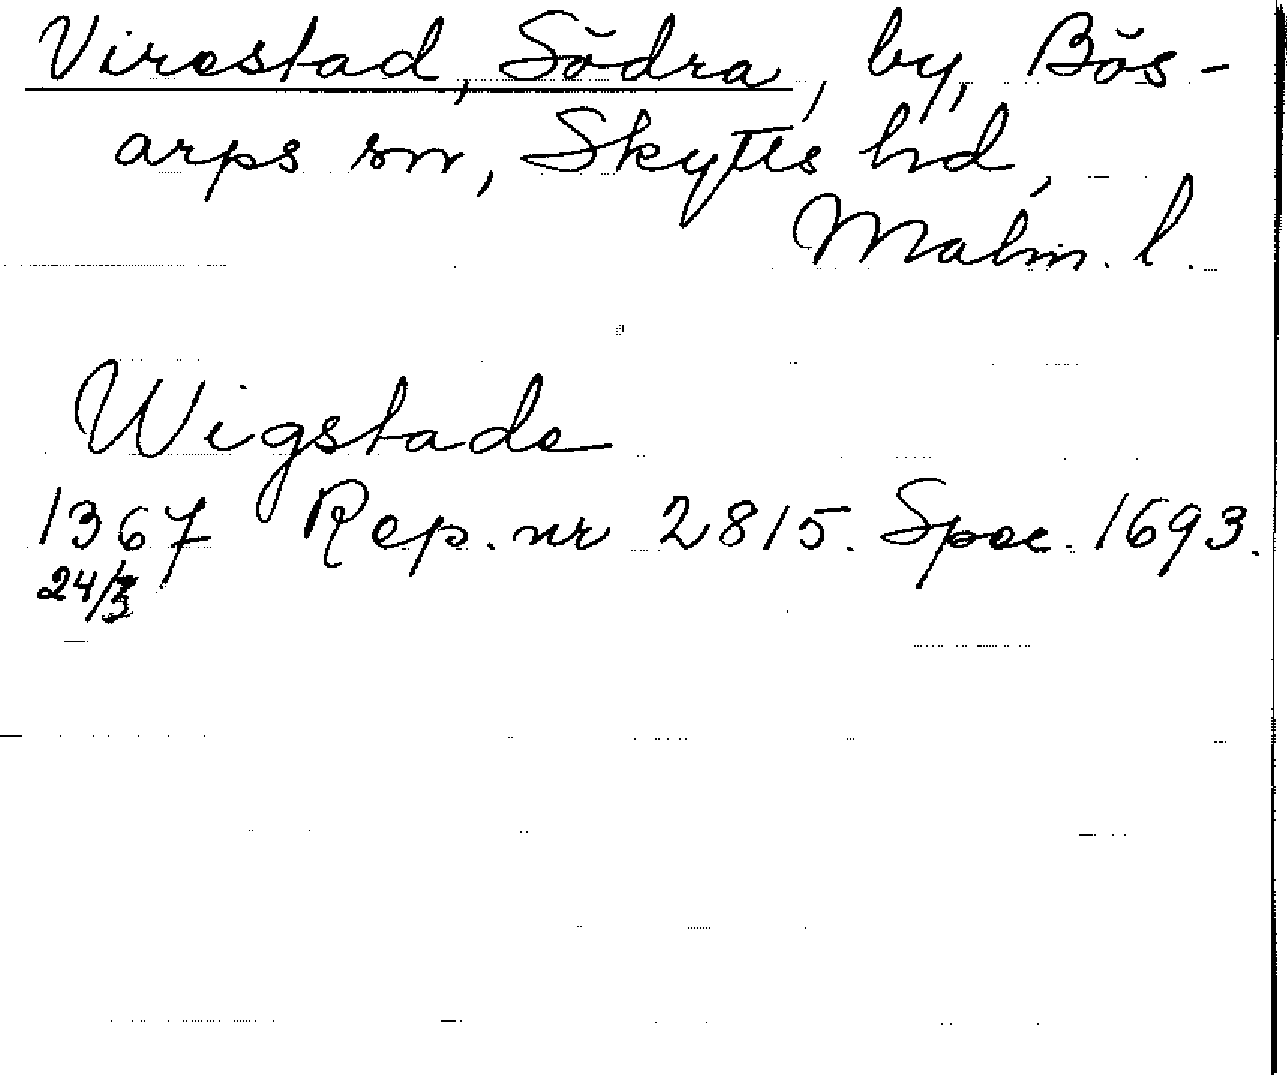 Virestad, Södra, by, Bös-
arps sn, Skytts hd,
Malm. l.
Wigstade
1367 Rep. nr 2815. Spec. 1693.
24/3